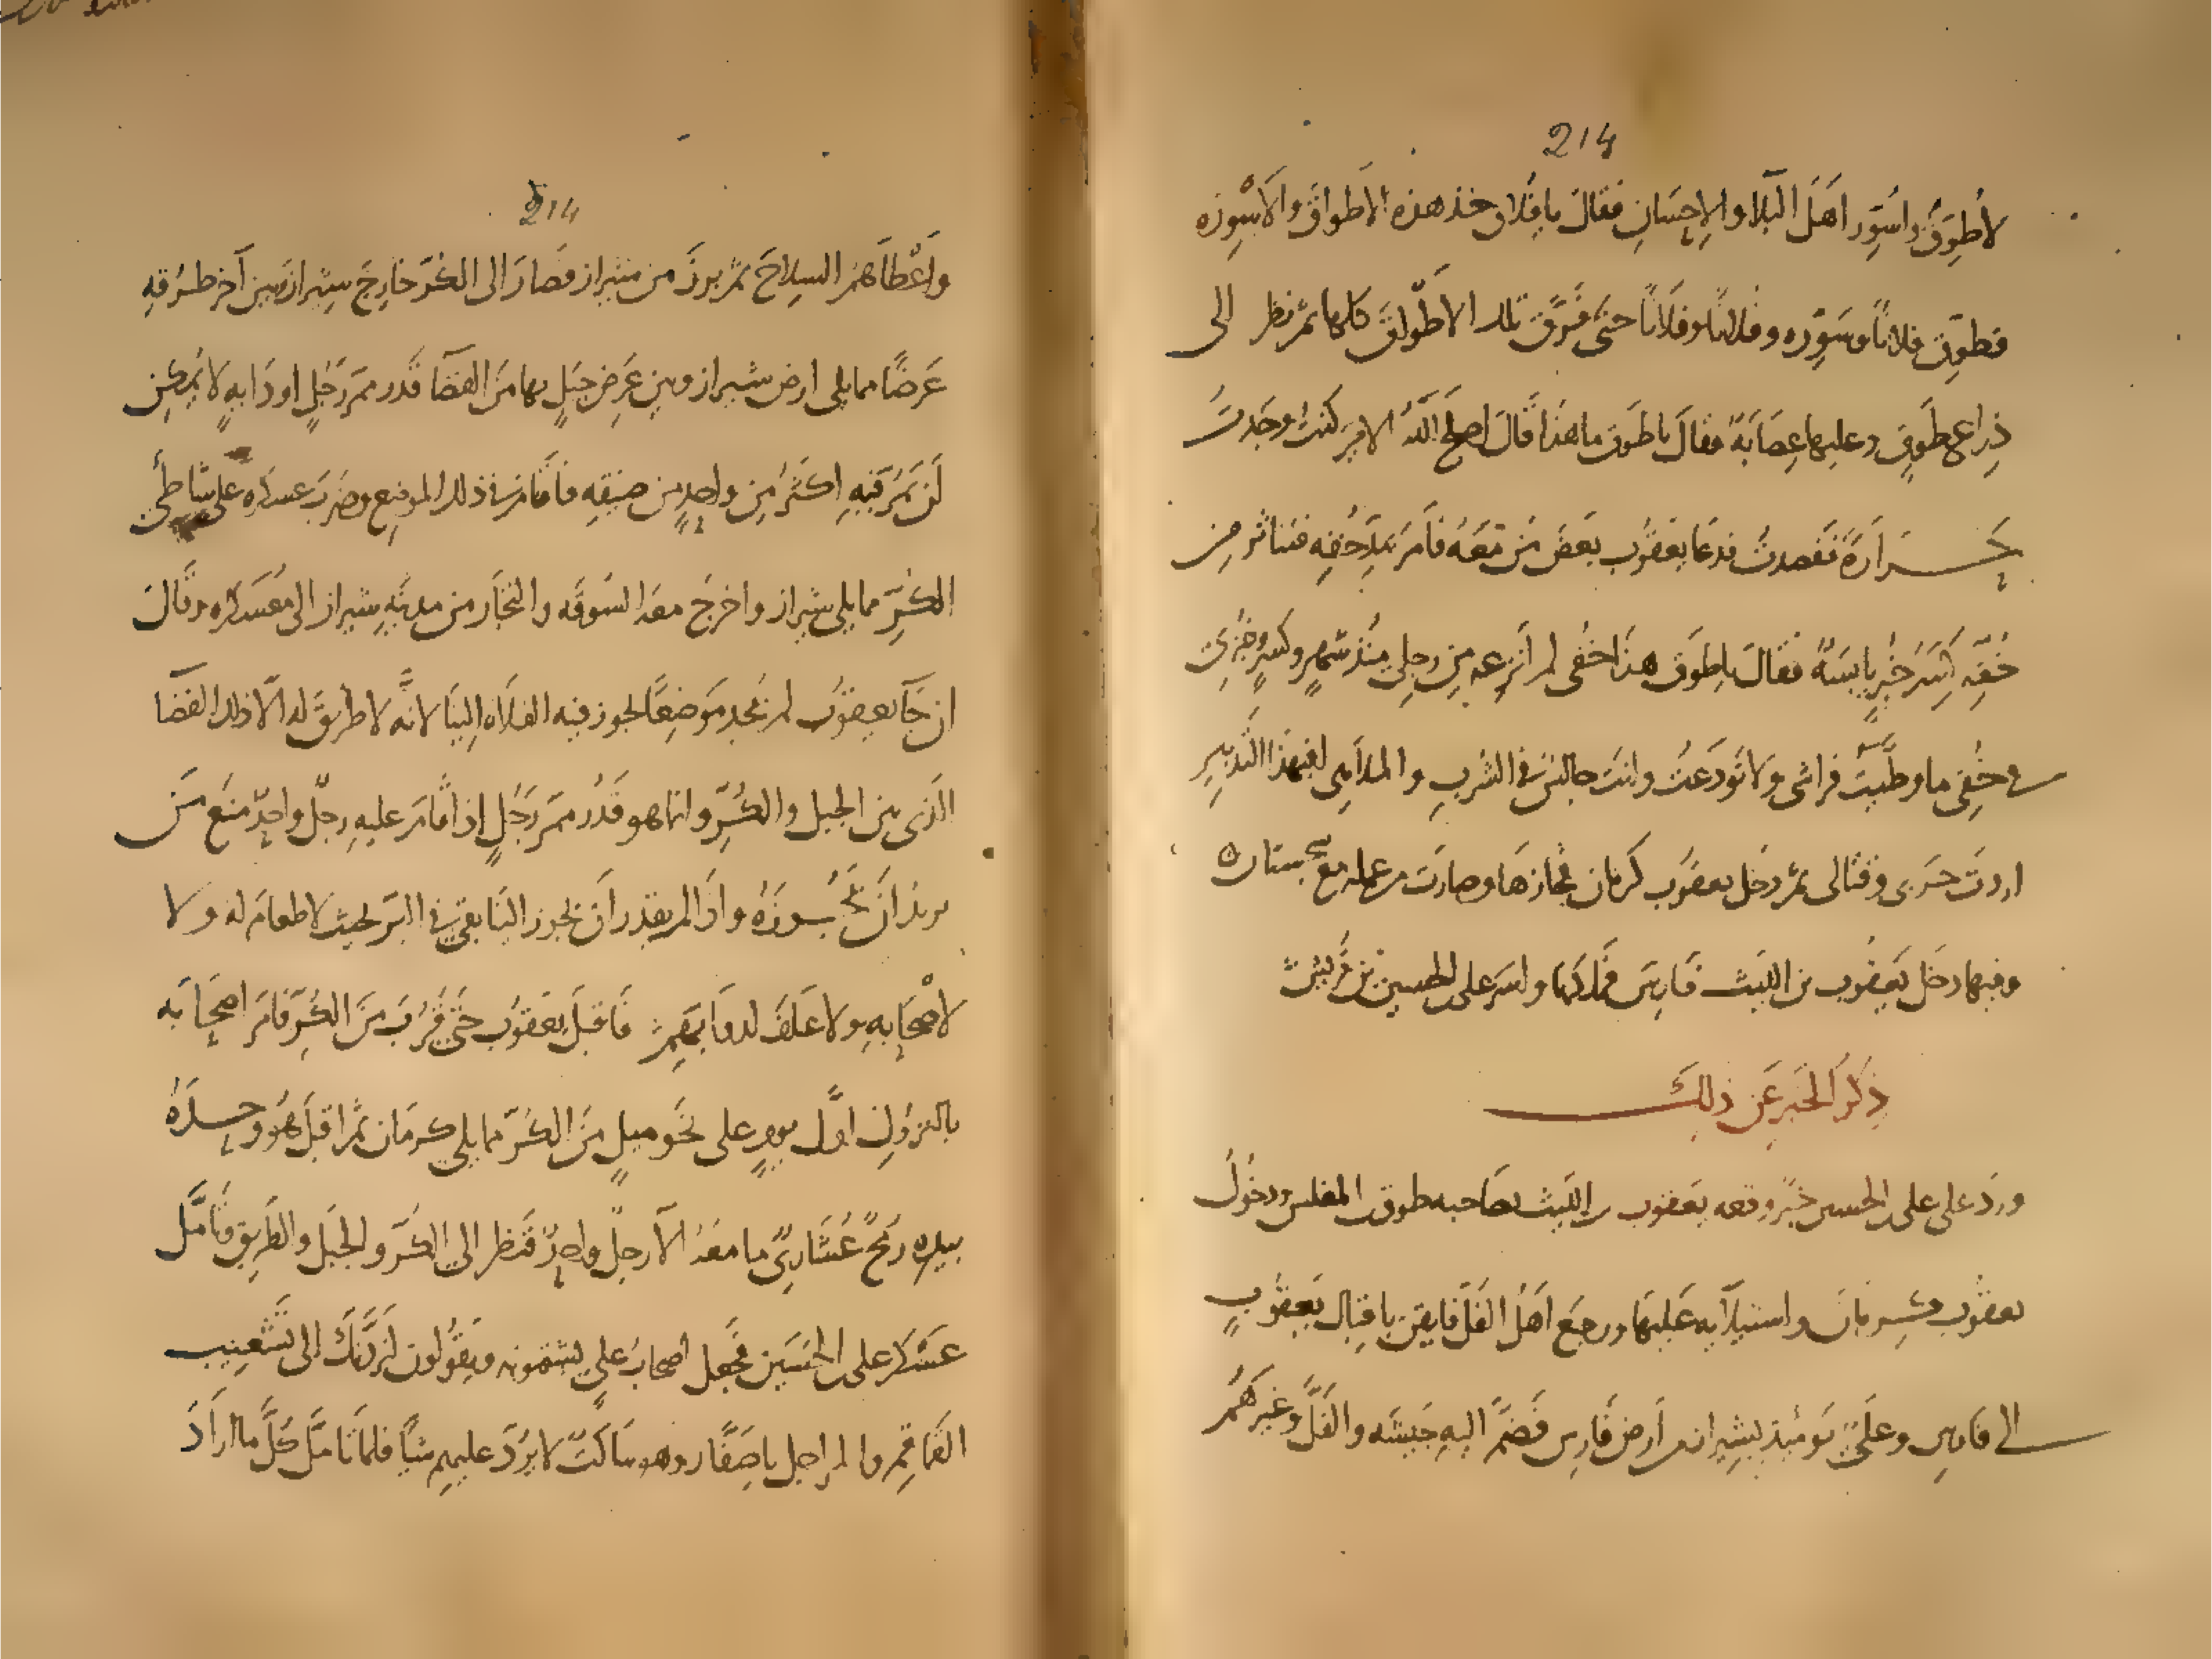 214
لأُطوِّق وأسوِّر أهل البلاء والإحسان فقال يا فلان خذ هذه الأطواق والأسورة
فطوق فلانا وسوره وفلانا وفلانا حتى فرق تلك الأطواق كلها ثم نظر الى
ذراع طوق وعليها عصابة فقال يا طوق ما هذا قال اصلح الله الامير كنت وجدت
حرارة ففصدت فدعا يعقوب بعض من معه فأمر بمد خفه فتناثر من
خفه كسر خبز يابسة فقال يا طوق هذا خفى لم أنزعه من رجلى منذ شهر وكسر خبزى
فى خفى ما وطئت فراشى ولا تودعت وانت جالس فى الشرب والملاهى افبهذا التدبير
اردت حربى وقتالى ثم دخل يعقوب كرمان فحازها وصارت من عمله مع سجستان
وفيها دخل يعقوب بن الليث فارس فملكها واسر على بن الحسين بن قريش
ذكر الخبر عن ذلك
ورد على على بن الحسين خبر وقعة يعقوب بن الليث بصاحبه طوق بن المغلس ودخول
يعقوب كرمان واستيلآيه عليها ورجع اهل الفل فايقن باقبال يعقوب
الى فارس وعلى يومئذ بشيراز من أرض فارس فضم اليه جيشه والفل وغيرهم
214
واعطاهم السلاح ثم برز من شيراز فصار الى الكر خارج شيراز بين آخر طرقه
عرضا مما يلى ارض شيراز وبين عرض جبل بها من الفضا قدر ممر رجل او دابة لا يمكن
لن يمر فيه اكثر من واحد من ضيقه فأقام فى ذلك الموضع وضرب عسكره على شاطئ
الكر مما يلى شيراز واخرج معه السوقة والتجار من مدينة شيراز الى معسكره وقال
ان جآ يعقوب لم نجد موضعا يجوز فيه الفلاه الينا لانه لا طريق له الا ذلك الفضا
الذى بين الجبل والكر وانما هو قدر ممر رجل اذا اقام عليه رجل واحد منع من
يريد ان يجوزه واذا لم يقدر ان يجوز الينا بقى فى البر بحيث لا طعام له ولا
لاصحابه ولا علف لدوابهم فاقبل يعقوب حتى قرب من الكر فامر اصحابه
بالنزول اول يوم على نحو ميل من الكر مما يلى كرمان ثم اقبل هو وحده
بيده رمح عشارى ما معه الا رجل واحد فنظر الى الكر والجبل والطريق فتامل
عسكر على بن الحسين فجعل اصحاب على يشتمونه ويقولون لنردنك الى تشعيب
القماقم والمراجل يا صفار وهو ساكت لا يرد عليهم شيا فلما تامل كل ما اراد